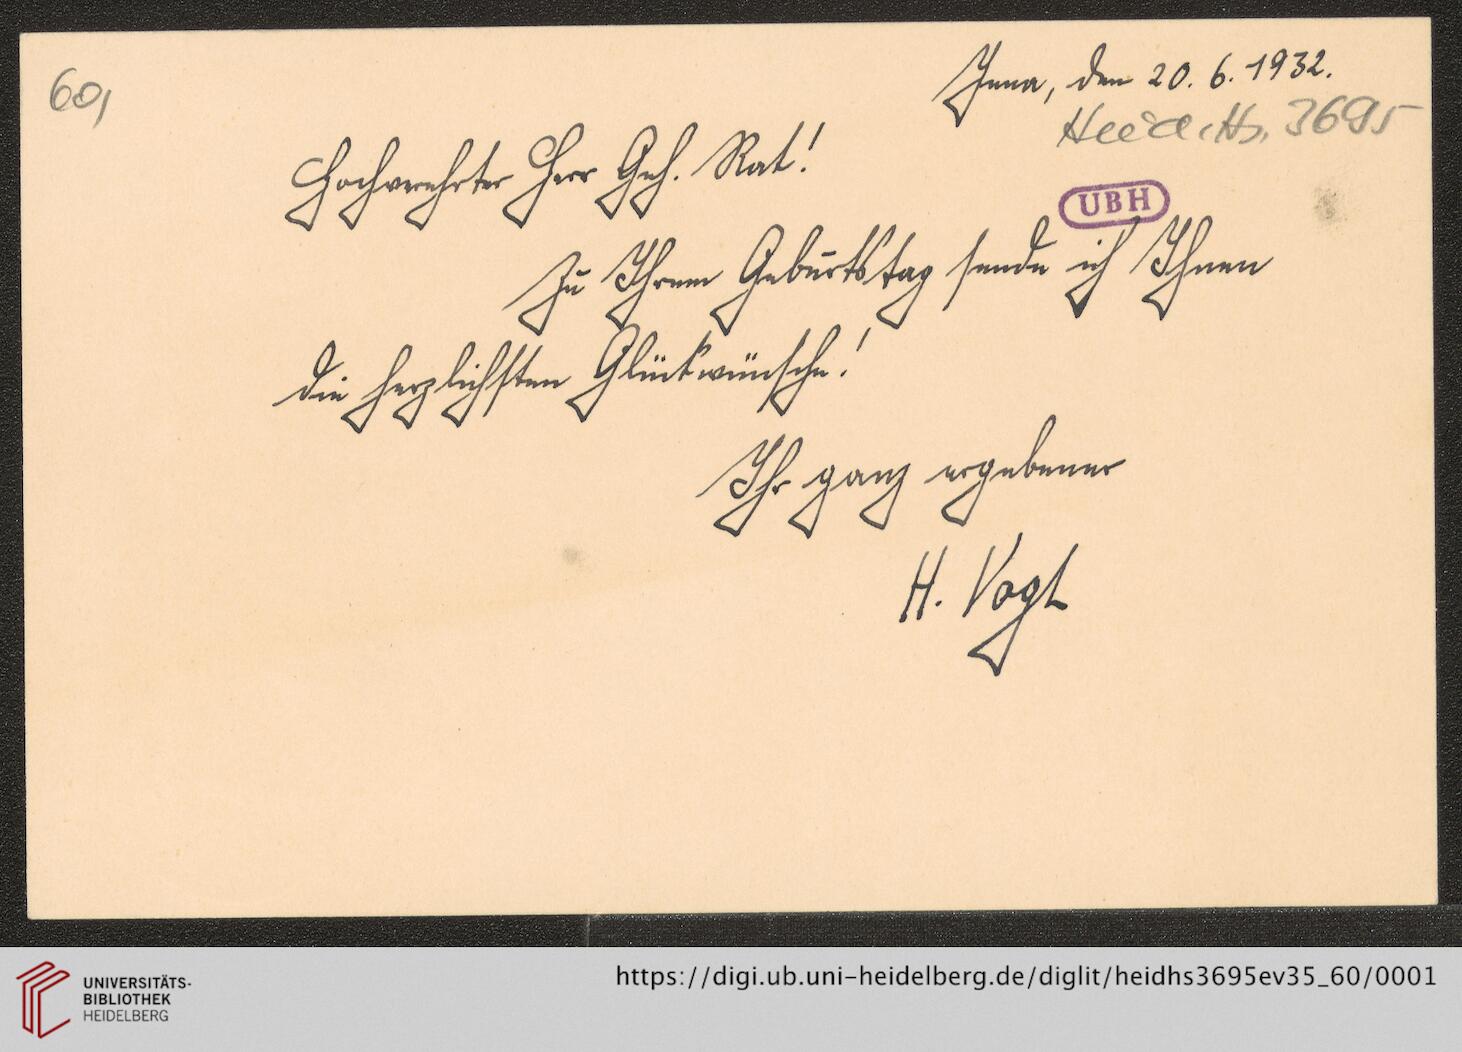 60,
Jena, den 20. 6. 1932.
Heid. Hs. 3695
Hochverehrter Herr Geh. Rat!
UBH
Zu Ihrem Geburtstag sende ich Ihnen
die herzlichsten Glückwünsche!
Ihr ganz ergebener
H. Vogt
UNIVERSITÄTS-
BIBLIOTHEK
HEIDELBERG
https://digi.ub.uni-heidelberg.de/diglit/heidhs3695ev35_60/0001